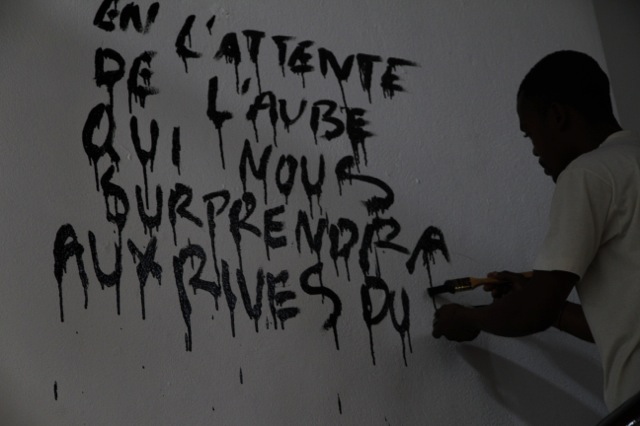 EN L'ATTENTE
DE L'AUBE
QUI NOUS
SURPRENDRA
AUX RIVES DU